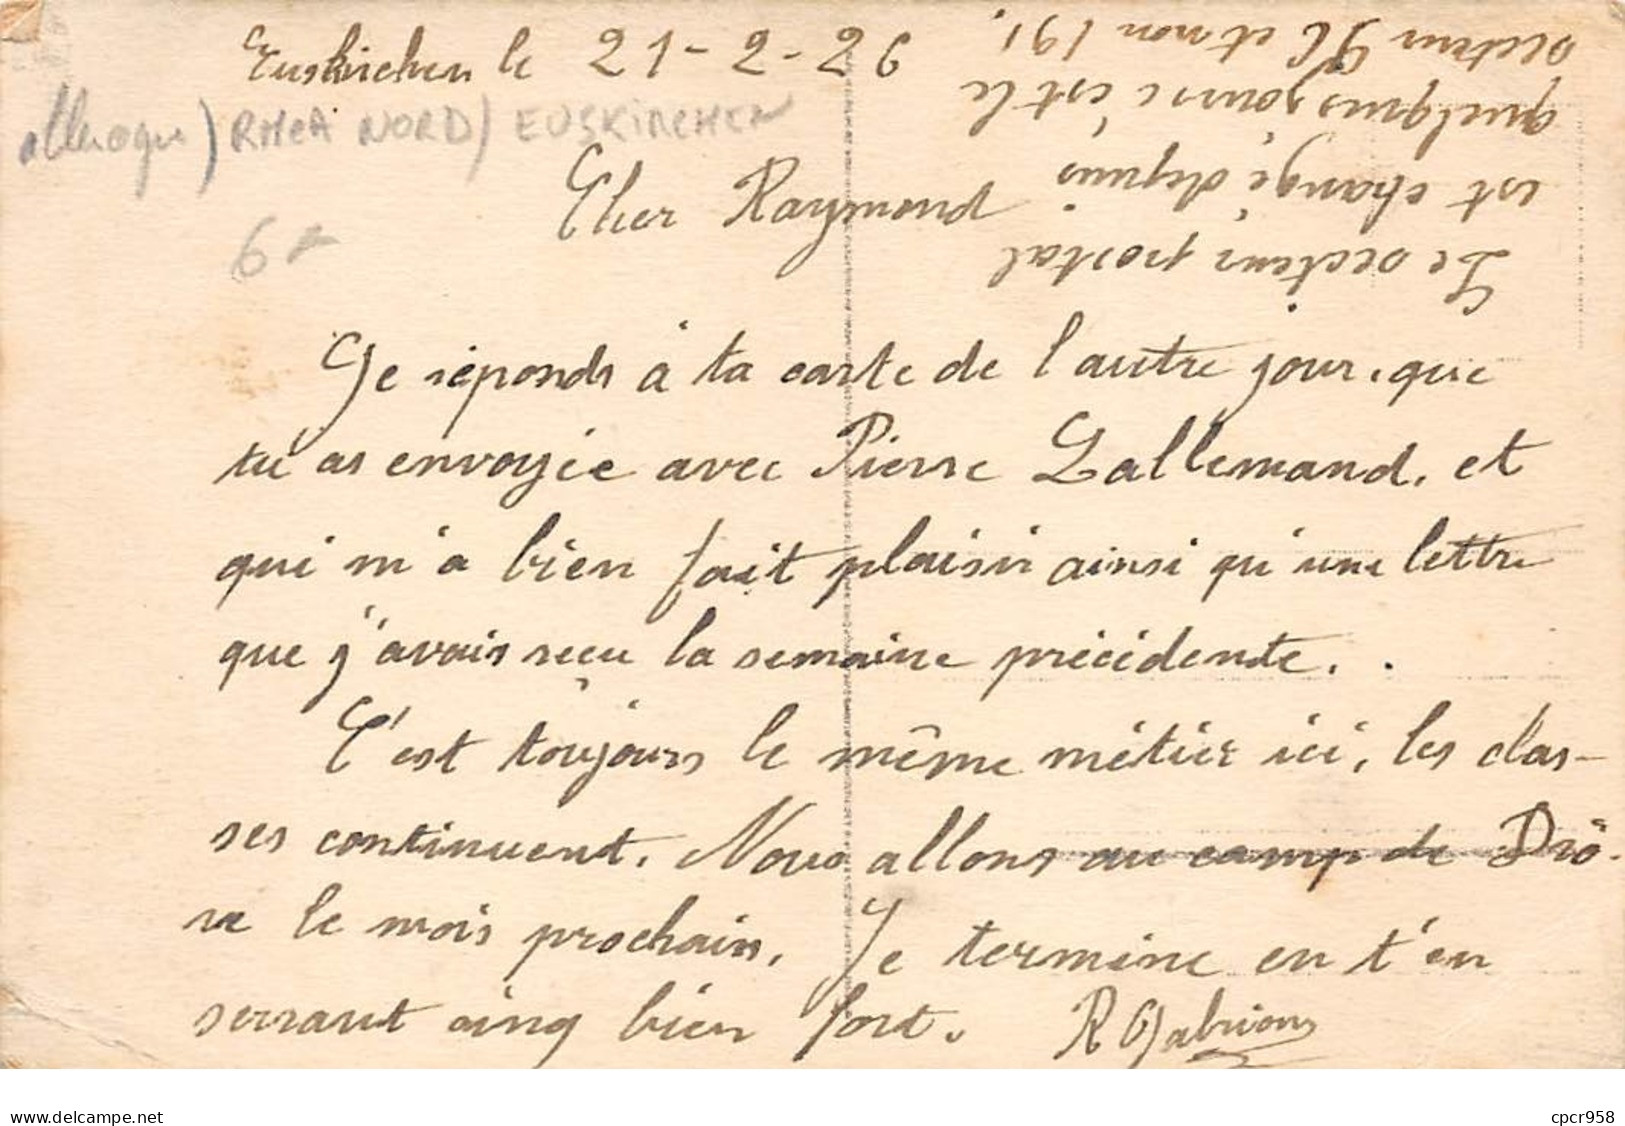 Euskirchen le 21-2-26
allemagne) RHEA NORD) EUSKIRCHEN
6
Cher Raymond
Le secteur postal
est changé depuis
quelques jours c'est le
secteur 96 et non 191.
Je réponds à ta carte de l'autre jour, que
tu as envoyée avec Pierre Lallemand, et
qui m'a bien fait plaisir ainsi qu'une lettre
que j'avais reçu la semaine précédente.
C'est toujours le même métier ici, les clas-
ses continuent. Nous allons au camp de Drô-
ve le mois prochain. Je termine en t'en
serrant cinq bien fort. R Gabrions
delcampe.net
cpcr958